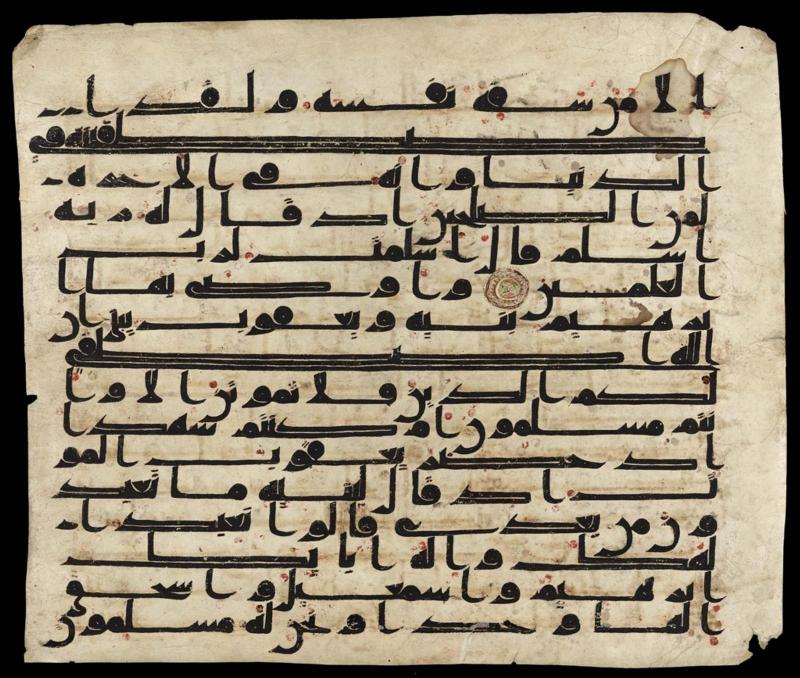 الا من سفه نفسه ولقد ا
صطفينه في
الدنيا وانه في الاخرة
لمن الصلحين اذ قال له ربه
اسلم قال اسلمت لرب
العلمين واوصى بها ا
برهيم بنيه ويعقوب يبني ان
الله اصطفى
لكم الدين فلا تموتن الا وا
نتم مسلمون ام كنتم شهدا
اذ حضر يعقوب المو
ت اذ قال لبنيه ما تعبد
ون من بعدي قالوا نعبد ا
لهك واله ابائك
ابرهيم واسمعيل واسحق
الها وحدا ونحن له مسلمون